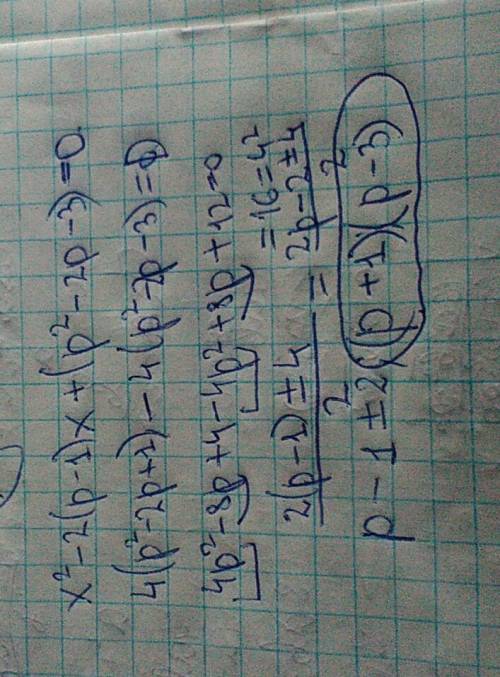 x² - 2(p-1)x + (p² - 2p - 3) = 0
4(p² - 2p + 1) - 4(p² - 2p - 3) = 0
4p² - 8p + 4 - 4p² + 8p + 12 = 0
= 16 = 4²
2(p-1) ± 4 / 2 = 2p - 2 ± 4 / 2
p - 1 ± 2; (p+1)(p-3)